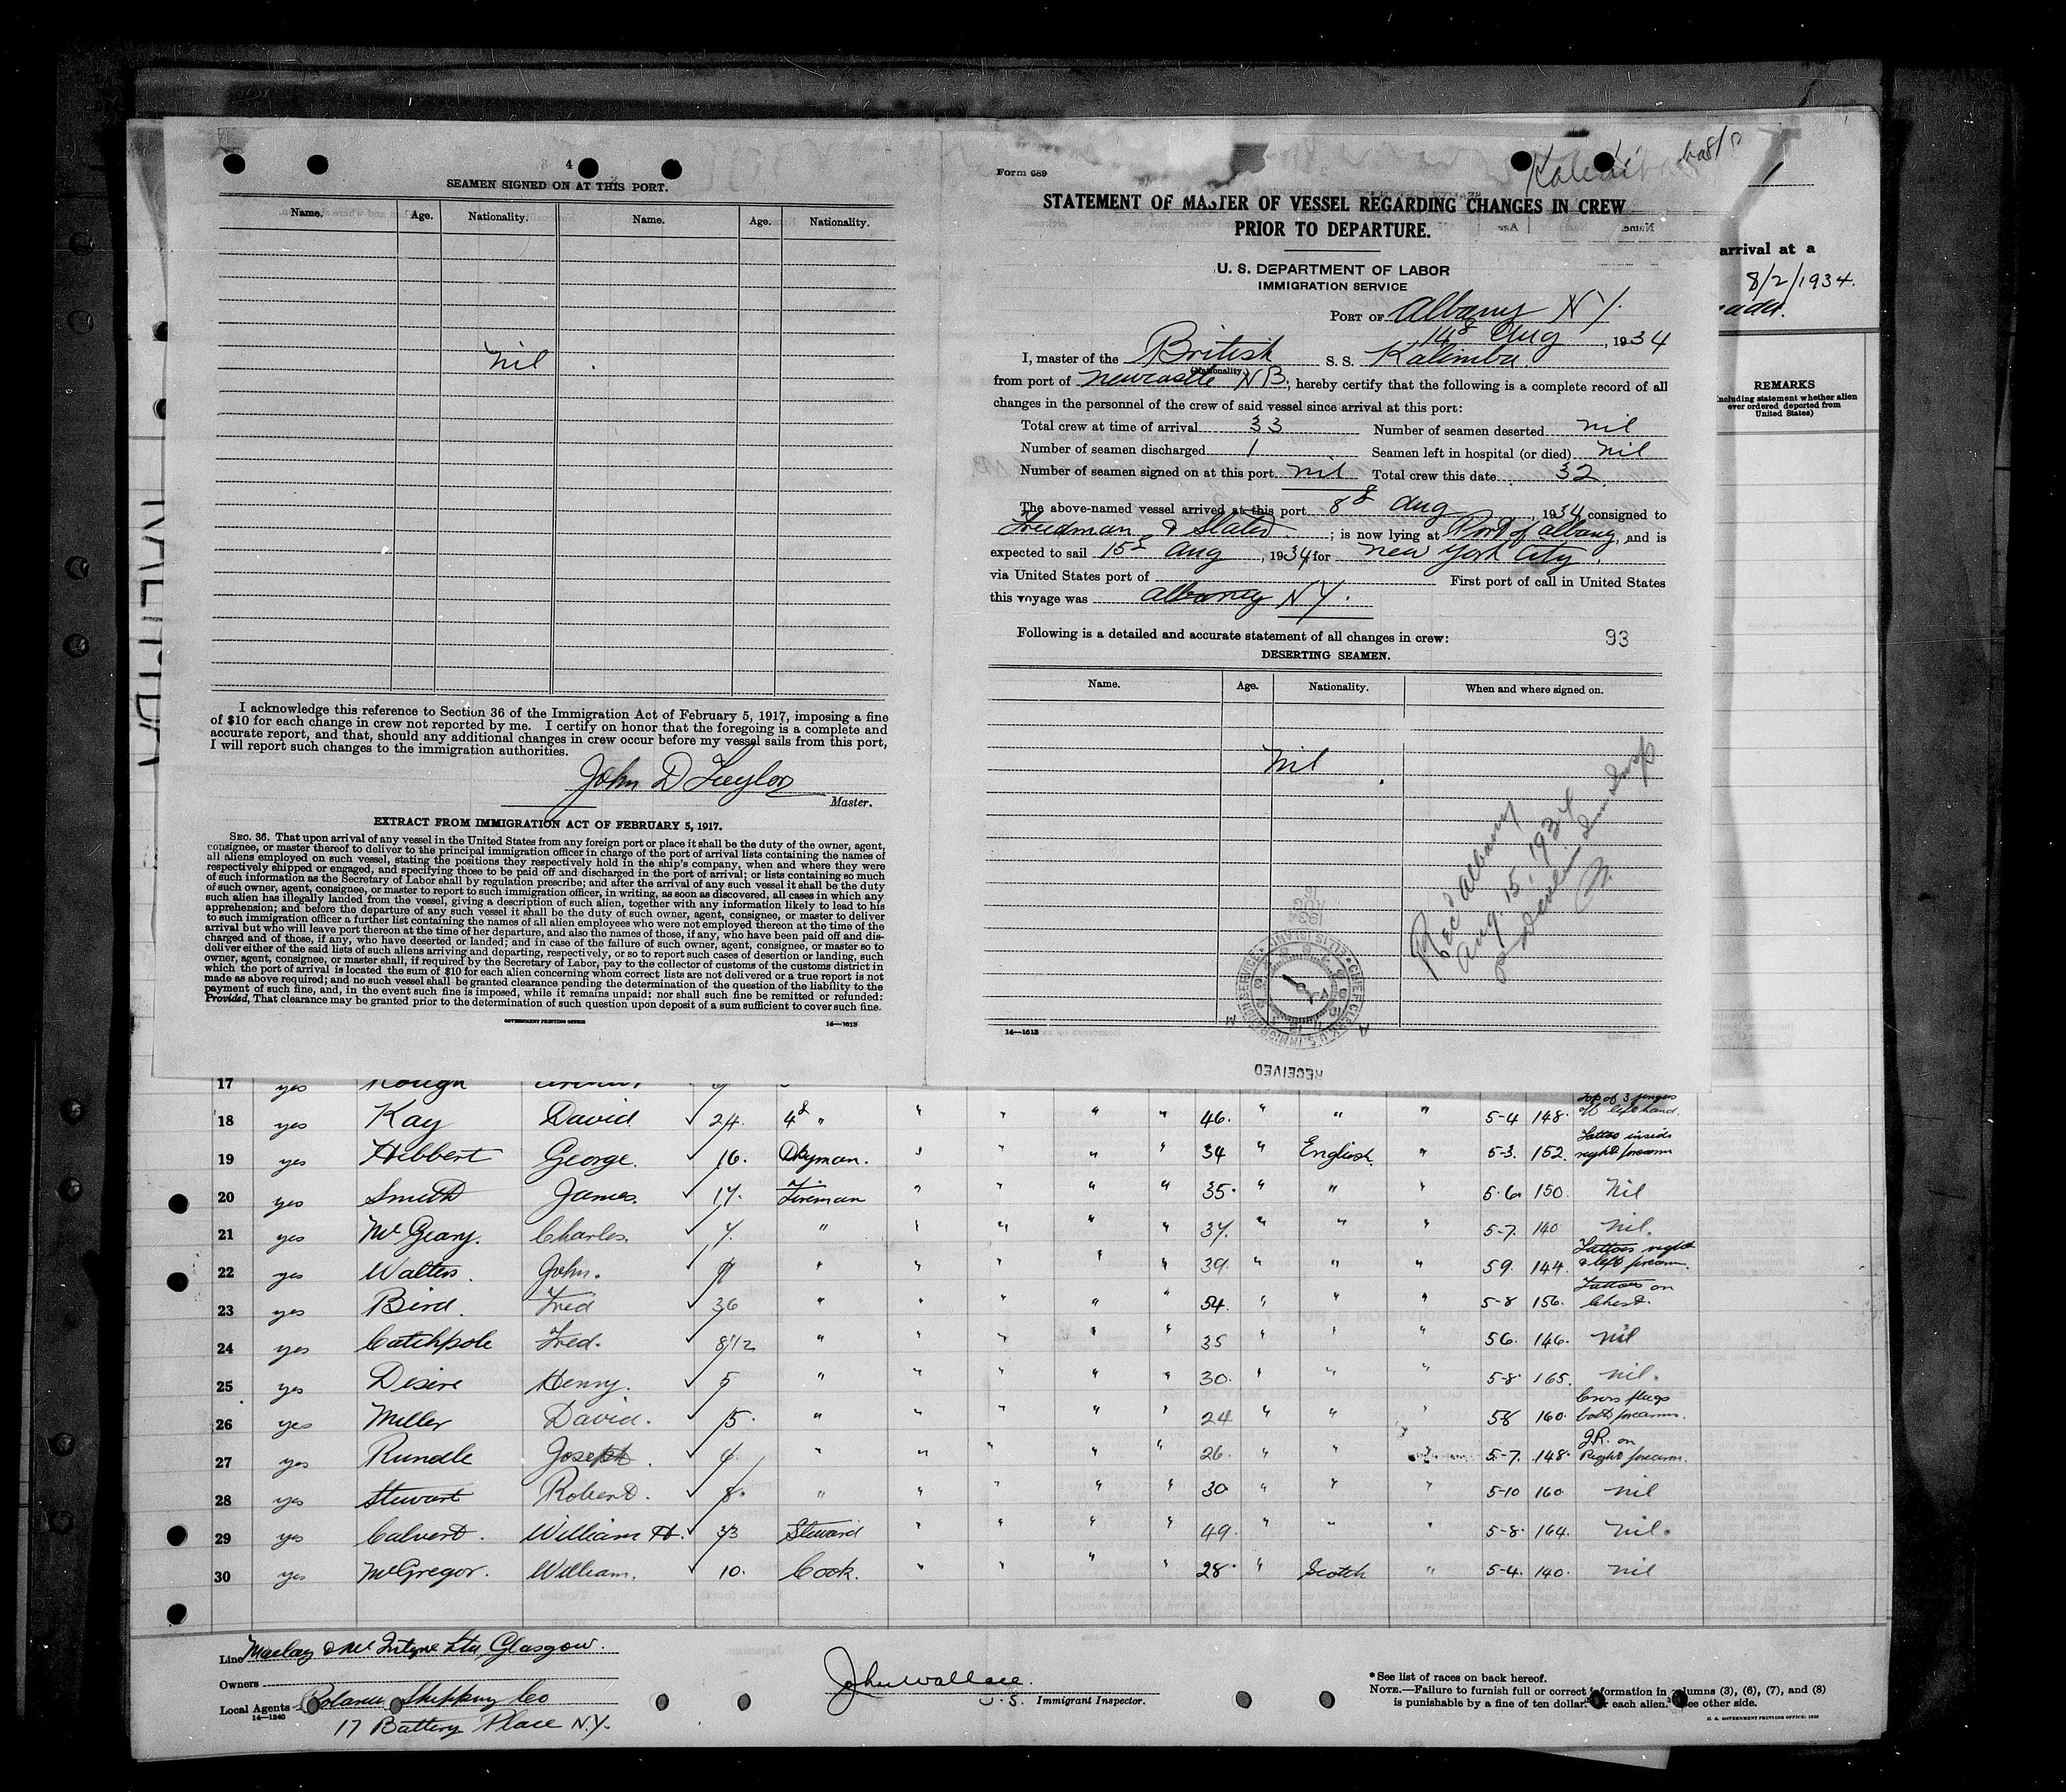 4
SEAMEN SIGNED ON AT THIS PORT.
Name. Age. Nationality. Name. Age. Nationality.
Nil
I acknowledge this reference to Section 36 of the Immigration Act of February 5, 1917, imposing a fine
of $10 for each change in crew not reported by me. I certify on honor that the foregoing is a complete and
accurate report, and that, should any additional changes in crew occur before my vessel sails from this port,
I will report such changes to the immigration authorities.
John D Taylor
Master.
EXTRACT FROM IMMIGRATION ACT OF FEBRUARY 5, 1917.
SEC. 36. That upon arrival of any vessel in the United States from any foreign port or place it shall be the duty of the owner, agent,
consignee, or master thereof to deliver to the principal immigration officer in charge of the port of arrival lists containing the names of
all aliens employed on such vessel, stating the positions they respectively hold in the ship's company, when and where they were
respectively shipped or engaged, and specifying those to be paid off and discharged in the port of arrival; or lists containing so much
of such information as the Secretary of Labor shall by regulation prescribe; and after the arrival of any such vessel it shall be the duty
of such owner, agent, consignee, or master to report to such immigration officer, in writing, as soon as discovered, all cases in which any
such alien has illegally landed from the vessel, giving a description of such alien, together with any information likely to lead to his
apprehension; and before the departure of any such vessel it shall be the duty of such owner, agent, consignee, or master to deliver
to such immigration officer a further list containing the names of all alien employees who were not employed thereon at the time of the
arrival but who will leave port thereon at the time of her departure, and also the names of those, if any, who have been paid off and dis-
charged and of those, if any, who have deserted or landed; and in case of the failure of such owner, agent, consignee, or master so to
deliver either of the said lists of such aliens arriving and departing, respectively, or so to report such cases of desertion or landing, such
owner, agent, consignee, or master shall, if required by the Secretary of Labor, pay to the collector of customs of the customs district in
which the port of arrival is located the sum of $10 for each alien concerning whom correct lists are not delivered or a true report is not
made as above required; and no such vessel shall be granted clearance pending the determination of the question of the liability to the
payment of such fine, and, in the event such fine is imposed, while it remains unpaid: nor shall such fine be remitted or refunded:
Provided, That clearance may be granted prior to the determination of such question upon deposit of a sum sufficient to cover such fine.
GOVERNMENT PRINTING OFFICE 14—1613
Form 689
STATEMENT OF MASTER OF VESSEL REGARDING CHANGES IN CREW
PRIOR TO DEPARTURE.
U. S. DEPARTMENT OF LABOR
IMMIGRATION SERVICE
PORT OF Albany NY.
14th Aug, 1934
I, master of the British S. S. Kalimba.
(Nationality.)
from port of Newcastle NB, hereby certify that the following is a complete record of all
changes in the personnel of the crew of said vessel since arrival at this port:
Total crew at time of arrival 33 Number of seamen deserted nil
Number of seamen discharged 1 Seamen left in hospital (or died) Nil
Number of seamen signed on at this port Nil Total crew this date 32.
The above-named vessel arrived at this port 8th Aug, 1934 consigned to
Freedman & Slater; is now lying at Port of Albany, and is
expected to sail 15th Aug, 1934, for New York City.
via United States port of First port of call in United States
this voyage was Albany NY.
Following is a detailed and accurate statement of all changes in crew: 93
DESERTING SEAMEN.
Name. Age. Nationality. When and where signed on.
Nil
Rec'd Albany
Aug. 15, 1934
CHIEF CLERK U.S. IMMIGRATION SERVICE ELLIS ISLAND
1934 AUG 16
RECEIVED
14—1613
1
arrival at a
8/2/1934.
REMARKS
(Including statement whether alien
ever ordered deported from
United States)
17 yes Rough
18 yes Kay David 24. 4th " " " " " 46. " " " 5-4 148. top of 3 fingers off left hand.
19 yes Hibbert George. 16. Dkyman. " " " " 34 " English. " 5-3. 152. Tattoo inside right forearm
20 yes Smith James. 17. Fireman " " " " 35. " " " 5-6. 150. Nil
21 yes McGeary. Charles. 4. " " " " " 37. " " " 5-7. 140 nil.
22 yes Walters. John. 9 " " " " " 39. " " " 59. 144. Tattoos right & left forearm.
23 yes Bird. Fred 36 " " " " " 54. " " " 5-8 156. Tattoos on Chest.
24 yes Catchpole Fred. 8 1/2 " " " " " 35 " " " 56. 146. nil
25 yes Disire Henry. 5 " " " " " 30. " " " 5-8 165. nil.
26 yes Miller David. 5. " " " " " 24 " " " 58 160. Cross flags both forearms.
27 yes Rundle Joseph. 6. " " " " " 26. " " " 5-7. 148. J.R. on Right forearm.
28 yes Stewart Robert. 8. " " " " " 30 " " " 5-10 160 nil
29 yes Calvert. William H. 33 Steward " " " " 49. " " " 5-8. 164. nil.
30 yes McGregor. William. 10. Cook. " " " " 28. " Scotch " 5-4. 140. nil
Line Maclay & McIntyre Ltd, Glasgow.
Owners
Local Agents Bolanu Shipping Co
14—1240
17 Battery Place N.Y.
John Wallace.
U.S. Immigrant Inspector.
* See list of races on back hereof.
NOTE.—Failure to furnish full or correct information in columns (3), (6), (7), and (8)
is punishable by a fine of ten dollars for each alien. See other side.
U. S. GOVERNMENT PRINTING OFFICE: 1932